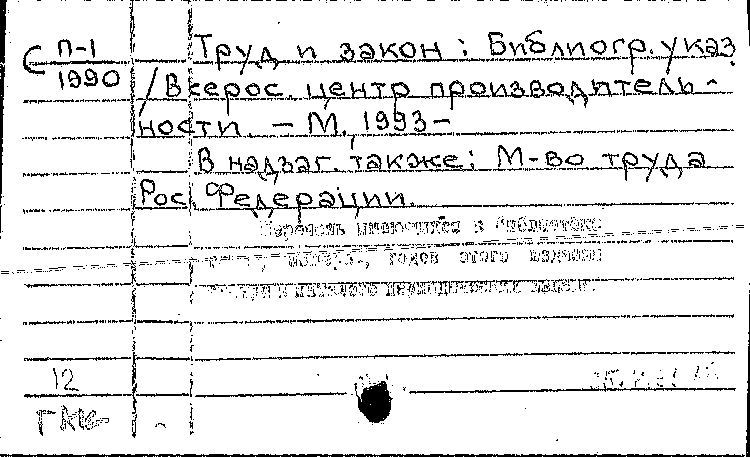 С П-1
1990
Труд и закон : Библиогр. указ.
/ Всерос. центр производитель-
ности. — М., 1993–
В надзаг. также: М-во труда
Рос. Федерации.
Перечень имеющихся в библиотеке
годов этого издания
12
ГКК